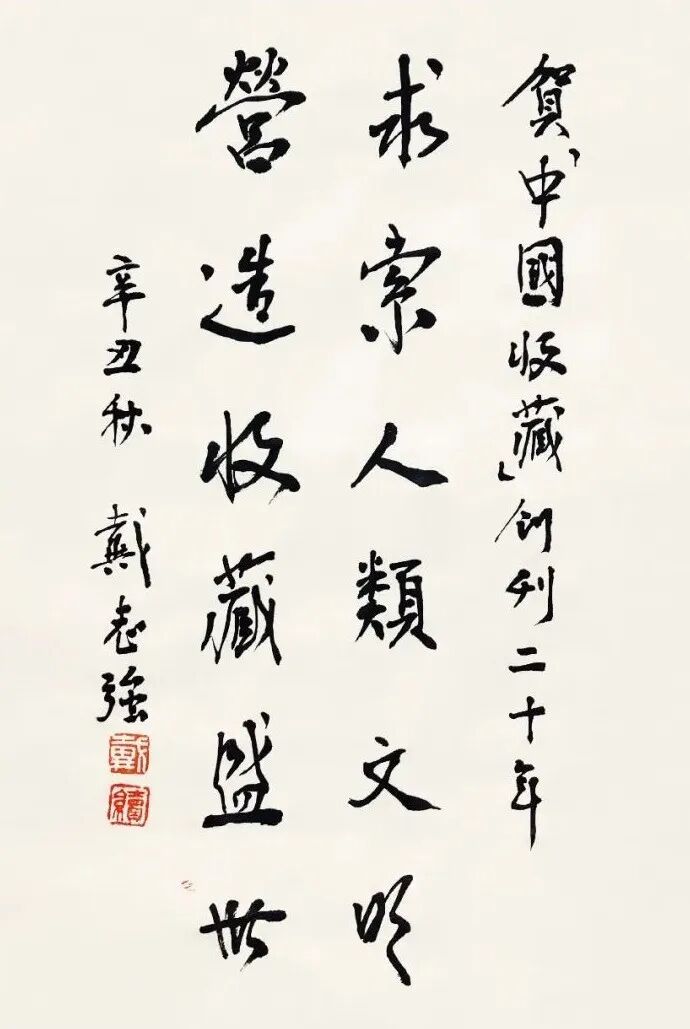 賀「中國收藏」創刊二十年
求索人類文明
營造收藏盛世
辛丑秋 戴志強
戴